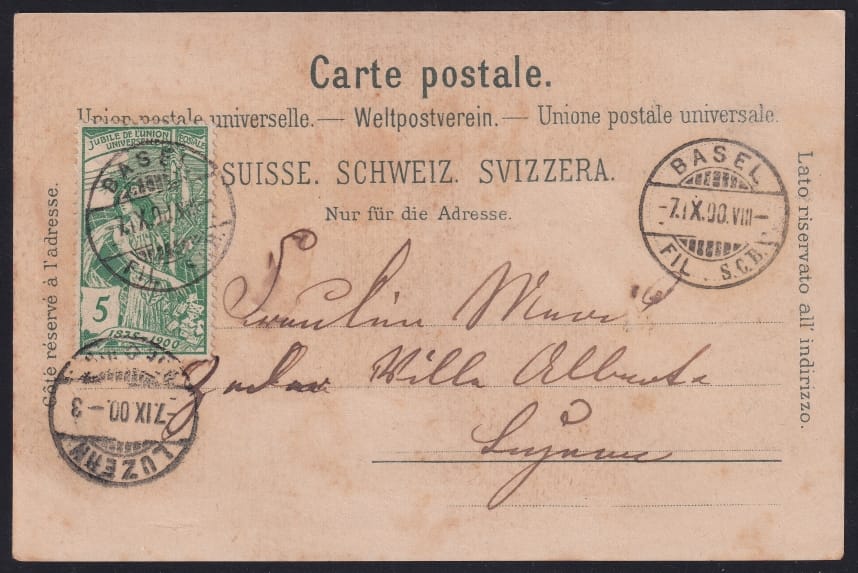 Carte postale.
Union postale universelle. — Weltpostverein. — Unione postale universale.
SUISSE. SCHWEIZ. SVIZZERA.
Nur für die Adresse.
Côté réservé à l'adresse.
Lato riservato all' indirizzo.
JUBILÉ DE L'UNION POSTALE
UNIVERSELLE
5
1875-1900
BASEL
7.IX.00.
FIL. S.C.B.
BASEL
-7.IX.00.VIII-
FIL. S.C.B.
LUZERN
-7.IX.00.-3
Fräulein
Villa Alberta